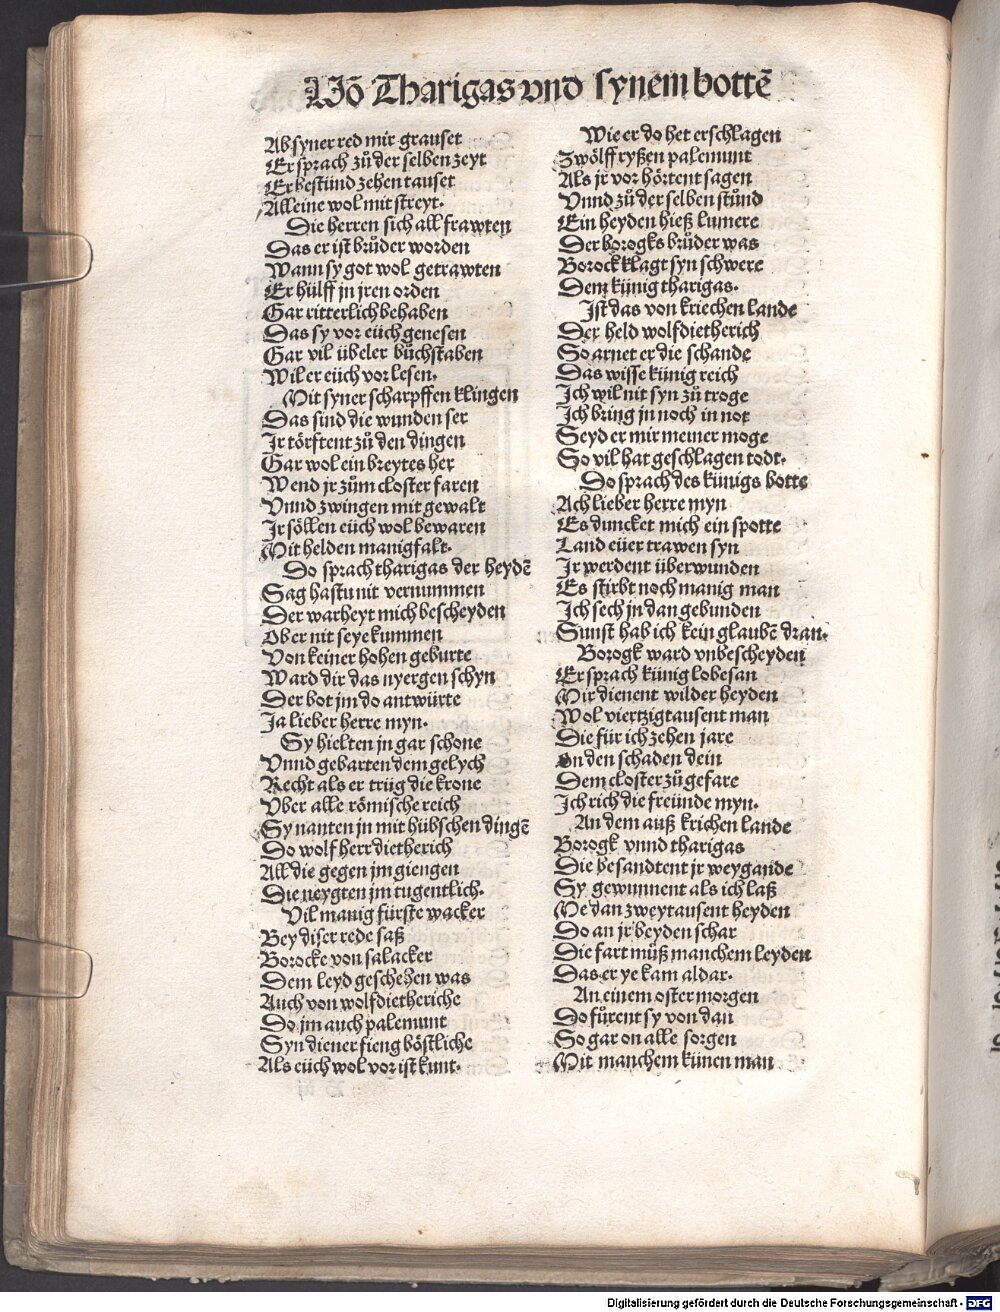 Vō Tharigas vnd synem bottē
Ab syner red mir grauset
Er sprach zů der selben zeyt
Er bestünd zehen tauset
Alleine wol mit streyt.
Die herren sich all frawten
Das er ist brůder worden
Wann sy got wol getrawten
Er hülff jn jren orden
Gar ritterlich behaben
Das sy vor eüch genesen
Gar vil übeler bůchstaben
Wil er eüch vor lesen.
Mit syner scharpffen klingen
Das sind die wunden ser
Jr törftent zů den dingen
Gar wol ein breytes her
Wend jr zům closter faren
Vnnd zwingen mit gewalt
Jr söllen eüch wol bewaren
Mit helden manigfalt.
Do sprach tharigas der heydē
Sag hastu nit vernummen
Der warheyt mich bescheyden
Ob er nit seye kummen
Von keiner hohen geburte
Ward dir das nyergen schyn
Der bot jm do antwürte
Ja lieber herre myn.
Sy hielten jn gar schone
Vnnd gebarten dem gelych
Recht als er trüg die krone
Vber alle römische reich
Sy nanten jn mit hübschen dingē
Do wolf herr dietherich
All die gegen jm giengen
Die neygten jm tugentlich.
Vil manig fürste wacker
Bey diser rede saß
Borocke von salacker
Dem leyd geschehen was
Auch von wolfdietheriche
Do jm auch palemunt
Syn diener fieng böstliche
Als eüch wol vor ist kunt.
Wie er do het erschlagen
Zwölff ryßen palemunt
Als jr vor hörtent sagen
Vnnd zů der selben stůnd
Ein heyden hieß lumere
Der borogks brůder was
Borock klagt syn schwere
Dem künig tharigas.
Jst das von kriechen lande
Der held wolfdietherich
So arnet er die schande
Das wisse künig reich
Jch wil nit syn zů troge
Jch bring jn noch in not
Seyd er mir meiner moge
So vil hat geschlagen todt.
Do sprach des künigs botte
Ach lieber herre myn
Es duncket mich ein spotte
Land eüer trawen syn
Jr werdent überwunden
Es stirbt noch manig man
Jch sech jn dan gebunden
Sunst hab ich kein glaubē dran.
Borogk ward vnbescheyden
Er sprach künig lobesan
Mir dienent wilder heyden
Wol viertzigtausent man
Die für ich zehen jare
On den schaden dein
Dem closter zů gefare
Jch rich die freünde myn.
An dem auß krichen lande
Borogk vnnd tharigas
Die besandtent jr weygande
Sy gewunnent als ich laß
Me dan zweytausent heyden
Do an jr beyden schar
Die fart můß manchem leyden
Das er ye kam aldar.
An einem oster morgen
Do fürent sy von dan
So gar on alle sorgen
Mit manchem künen man
Digitalisierung gefördert durch die Deutsche Forschungsgemeinschaft - DFG